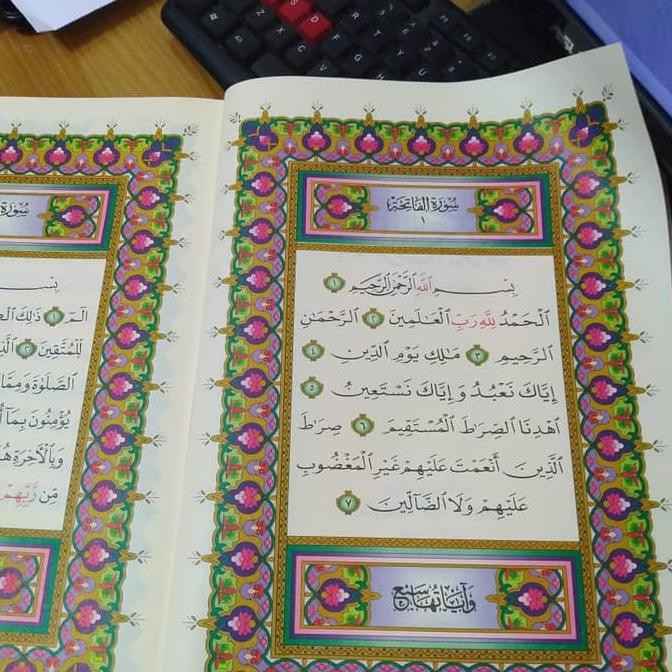 سُورَةُ الفَاتِحَة
١
بِسْمِ اللَّهِ الرَّحْمَٰنِ الرَّحِيمِ ١
الْحَمْدُ لِلَّهِ رَبِّ الْعَٰلَمِينَ ٢ الرَّحْمَٰنِ
الرَّحِيمِ ٣ مَٰلِكِ يَوْمِ الدِّينِ ٤
إِيَّاكَ نَعْبُدُ وَإِيَّاكَ نَسْتَعِينُ ٥
اهْدِنَا الصِّرَٰطَ الْمُسْتَقِيمَ ٦ صِرَٰطَ
الَّذِينَ أَنْعَمْتَ عَلَيْهِمْ غَيْرِ الْمَغْضُوبِ
عَلَيْهِمْ وَلَا الضَّآلِّينَ ٧
وَآيَاتُهَا سَبْعٌ
سُورَة
الٓمٓ ١ ذَٰلِكَ
لِّلْمُتَّقِينَ ٢
الصَّلَوٰةَ وَمِمَّا
يُؤْمِنُونَ بِمَآ
وَبِالْآخِرَةِ
مِّن رَّبِّهِمْ